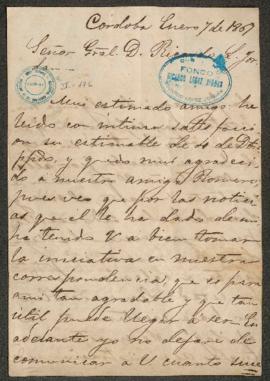 Cordoba Enero 7 de 1867
Señor Gral. D. Ricardo L. Jor
dan
FONDO
RICARDO LOPEZ JORDAN
Mui estimado amigo: he
leido con íntima satisfaccion
su estimable de
ppdo, y quedo mui agradeci
do a nuestro amigo Romero,
pues veo que por las noticias
que él le ha dado de mi
ha tenido V. a bien tomar
la iniciativa en nuestra
correspondencia, que es para
mi tan agradable y que tan
útil puede llegar a ser. En
adelante yo no dejaré de
comunicar a V cuanto suce